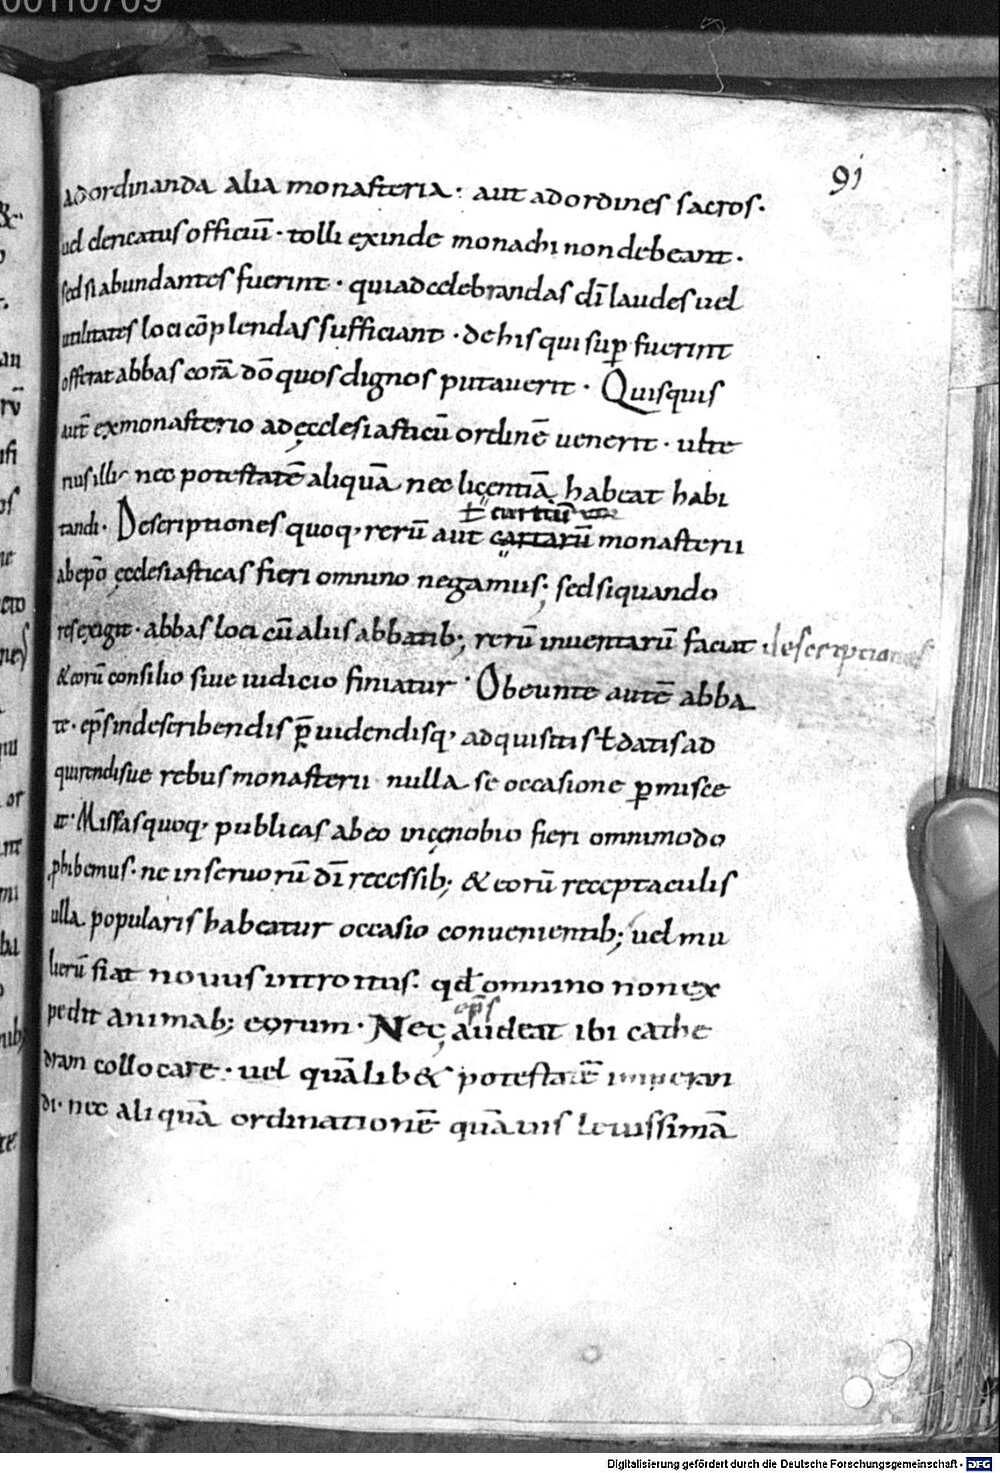 00110709
91
adordinanda alia monasteria: aut adordines sacros.
uel clericatus officiū· tolli exinde monachi nondebeant.
sed si abundantes fuerint· quiadcelebrandas dī laudes uel
utilitates loci cōplendas sufficiant· dehis qui sup̄ fuerint
offerat abbas corā dō quos dignos putauerit· Quisquis
aut̄ exmonasterio adęcclesiasticū ordinē uenerit· ulte
nus illic nec potestatē aliquā nec licentiā habeat habi
ł curtiū
tandi· Descriptiones quoq, rerū aut cartarū monasterii
abepō ęcclesiasticas fieri omnino negamus; sedsiquando
resexigit· abbas loci cū aliis abbatib; rerū inuentarū faciat descriptiones
& eorū consilio siue iudicio finiatur· Obeunte autē abba
te· ep̄s indescribendis p̄uidendisq, adquisitis ł datis ad
quirendisue rebus monasterii nulla se occasione pmisce
at· Missas quoq, publicas abeo incęnobio fieri omnimodo
phibemus· ne inseruorū dī recessib; & eorū receptaculis
ulla popularis habeatur occasio conuenientib; uel mu
lierū fiat nouus introitus. qđ omnino nonex
ep̄s
pedit animab; eorum· Nec audeat ibi cathe
dram collocare· uel quālib& potestatē imperan
di· nec aliquā ordinationē quāuis leuissimā
Digitalisierung gefördert durch die Deutsche Forschungsgemeinschaft - DFG